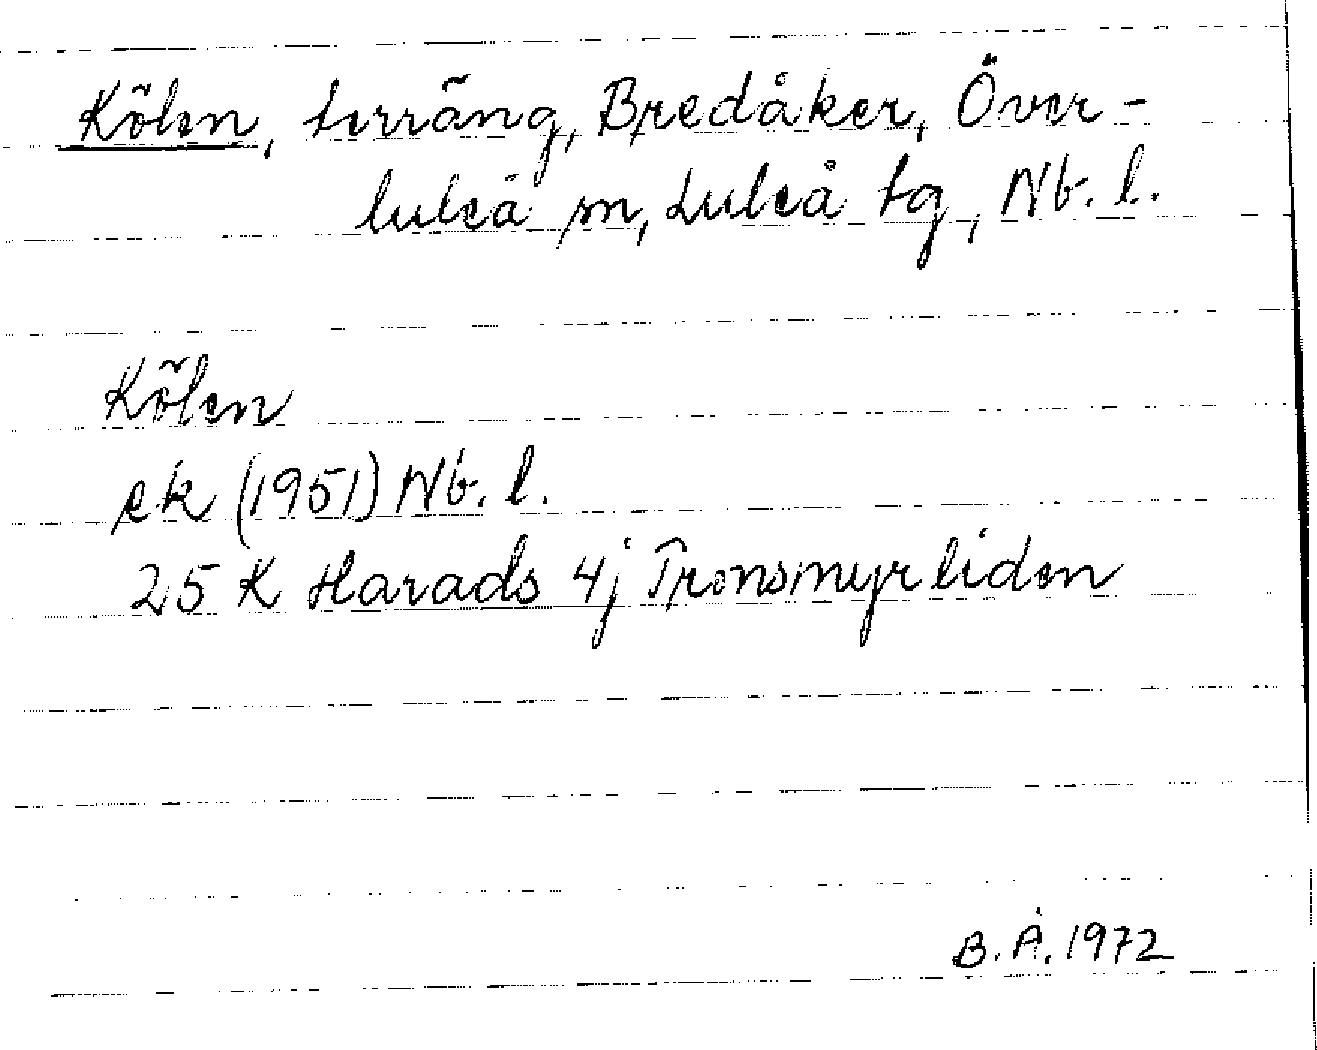 Kölen, terräng, Bredåker, Över-
luleå sn, Luleå tg, Nb. l.
Kölen
ek (1951) Nb. l.
25 K Harads 4j Tronsmyrliden
B. Å. 1972